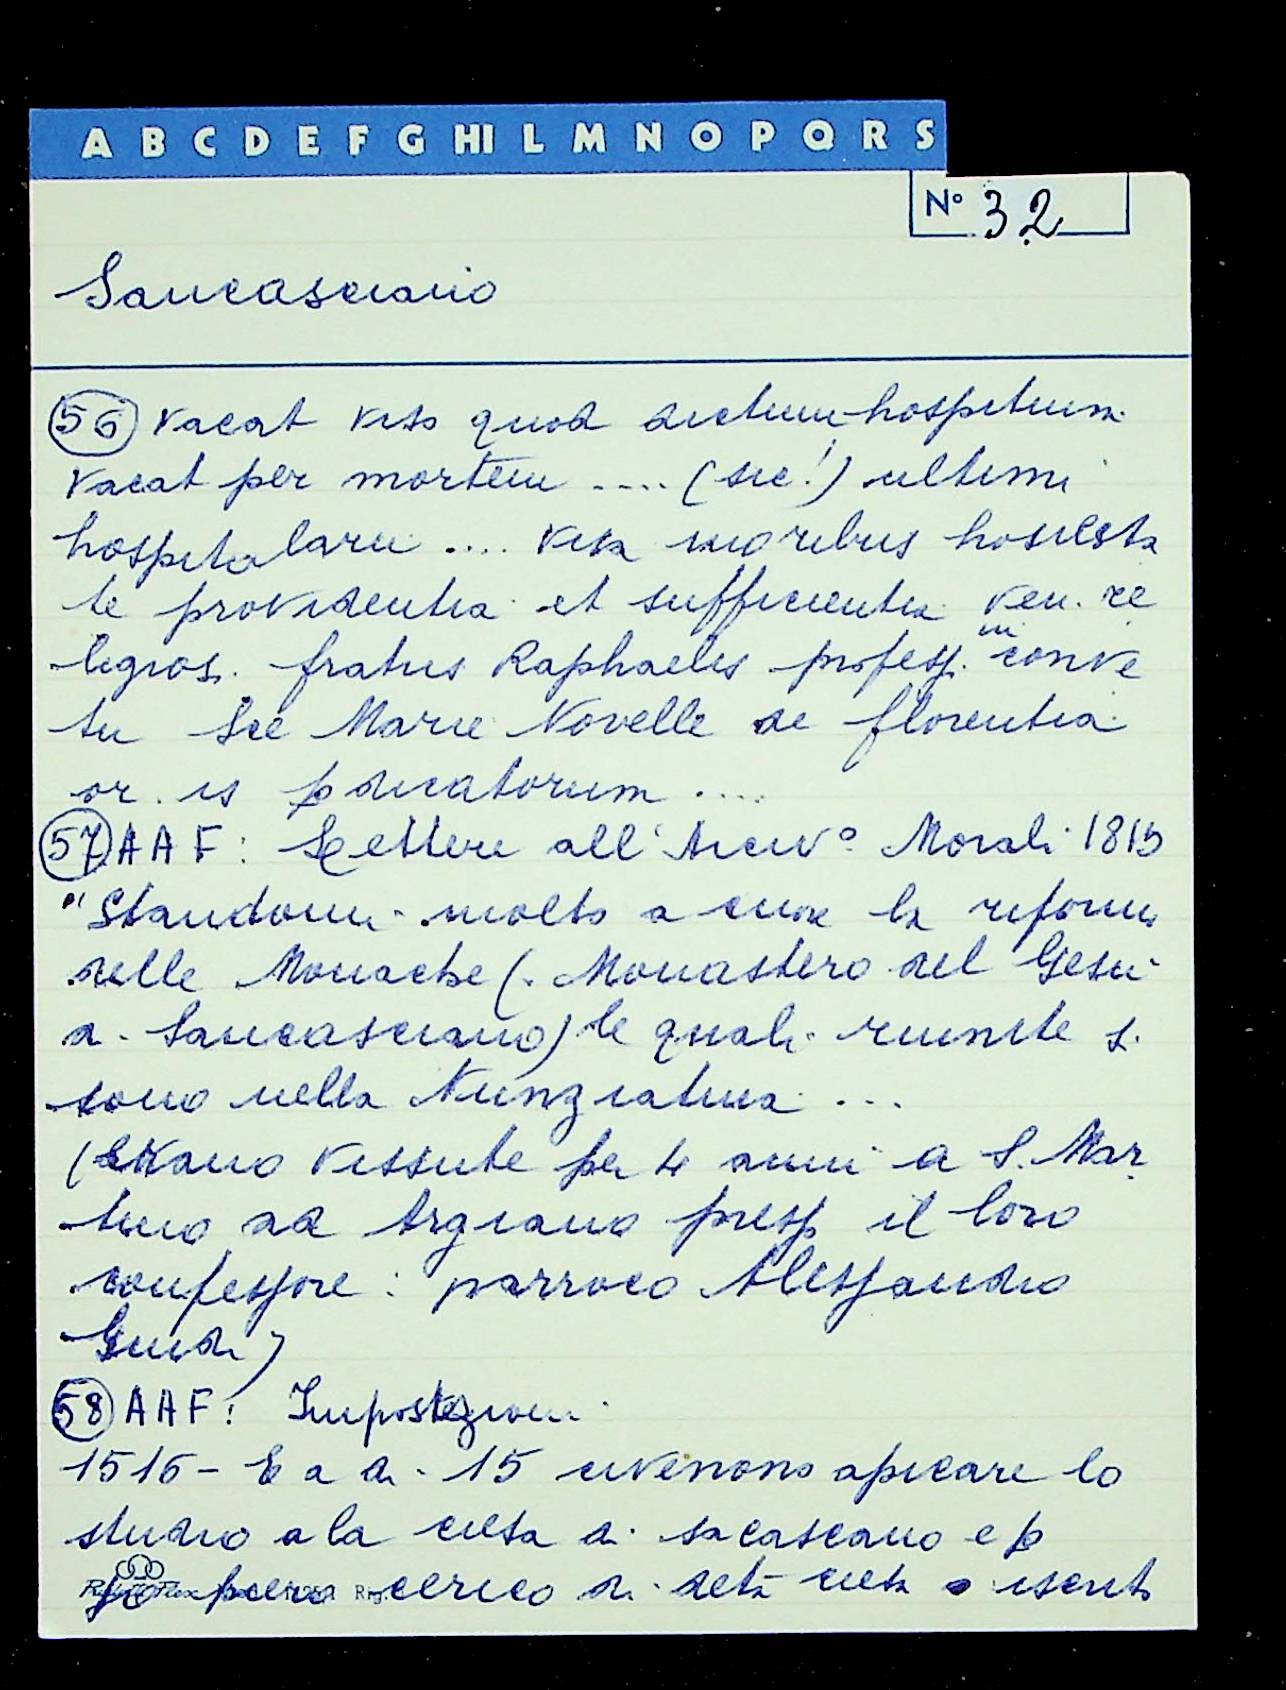 A B C D E F G HI L M N O P Q R S
Nº 32
Sancasciano
56 vacat visto quod dictum hospitium
vacat per mortem .... (sic!) ultimi
hospitalarii .... visa moribus honesta
te providentia et sufficientia ven. re
ligios. fratris Raphaelis profess. in conve
tu Sce Marie Novelle de florentia
or. is pdicatorum ....
57 AAF: Lettere all'Arciv° Morali 1815
"Standomi molto a cuore la riforma
delle Monache (Monastero del Gesù
a Sancasciano) le quali riunite si
sono nella Nunziatura ...
(erano vissute per 4 anni a S. Mar
tino ad Argiano presso il loro
confessore: parroco Alessandro
Guidi)
58 AAF: Impostazioni
1516 - E a di 15 apicare lo
studio a la ciesa di sacascano e p
pero cerico di deta ciesa iscrito